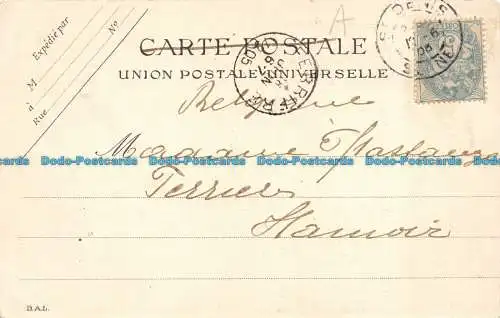 Expédie par
M
No
à
Rue
A
CARTE POSTALE
UNION POSTALE UNIVERSELLE
FERRIERE
Belgique
Madame
Ferrieres
Hamoir
Dodo-Postcards Dodo-Postcards Dodo-Postcards Dodo-Postcards Dodo-Postcards
B.A.L.